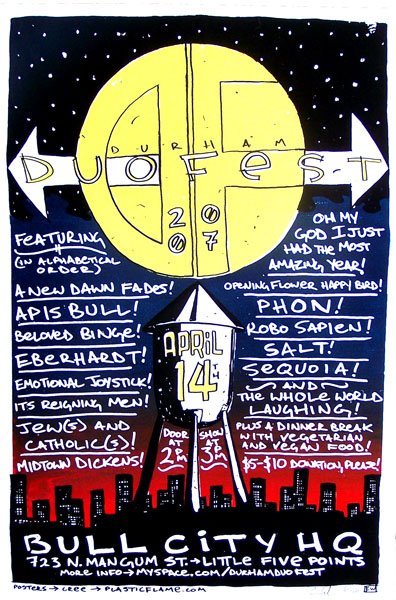 DURHAM
DUOFEST
2007
FEATURING
(IN ALPHABETICAL
ORDER)
A NEW DAWN FADES!
APIS BULL!
BELOVED BINGE!
EBERHARDT!
EMOTIONAL JOYSTICK!
ITS REIGNING MEN!
JEW(S) AND
CATHOLIC(S)!
MIDTOWN DICKENS!
OH MY
GOD I JUST
HAD THE MOST
AMAZING YEAR!
OPENING FLOWER HAPPY BIRD!
PHON!
ROBO SAPIEN!
SALT!
SEQUOIA!
~AND~
THE WHOLE WORLD
LAUGHING!
PLUS A DINNER BREAK
WITH VEGETARIAN
AND VEGAN FOOD!
$5-$10 DONATION, PLEASE!
APRIL
14TH
DOOR
AT
2PM
SHOW
3PM
BULL CITY HQ
723 N. MANGUM ST. → LITTLE FIVE POINTS
MORE INFO → MYSPACE.COM/DURHAMDUOFEST
POSTERS → CREE → PLASTICFLAME.COM